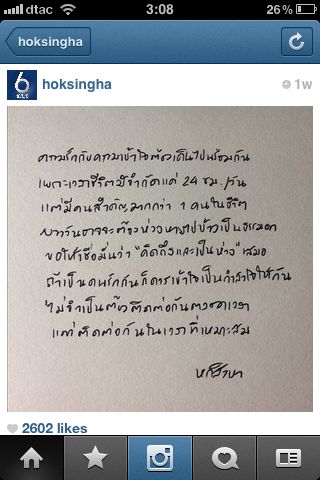 dtac 3:08 26%
hoksingha
hoksingha 1w
ความรักกับความเข้าใจต้องเดินไปพร้อมกัน
เพราะเวลาชีวิตมีจำกัดแค่ 24 ชม./วัน
แต่มีคนสำคัญมากกว่า 1 คนในชีวิต
บางวันอาจจะต้องห่างหายไปบ้างเป็นธรรมดา
ขอให้เชื่อมั่นว่า "คิดถึงและเป็นห่วง" เสมอ
ถ้าเป็นคนรักกันก็ควรเข้าใจเป็นกำลังใจให้กัน
ไม่จำเป็นต้องติดต่อกันตลอดเวลา
แค่ติดต่อกันในเวลาที่เหมาะสม
หกสิงหา
2602 likes